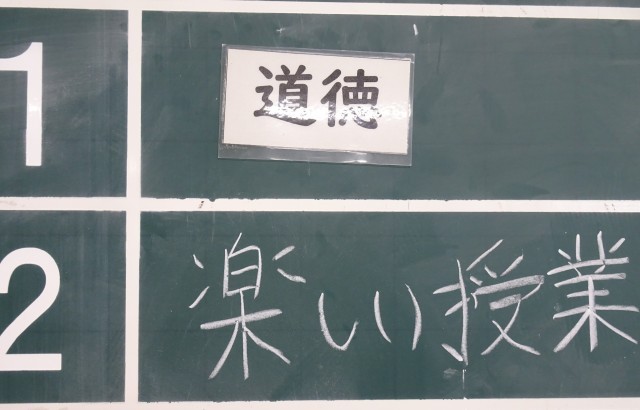 1
道徳
2
楽しい授業